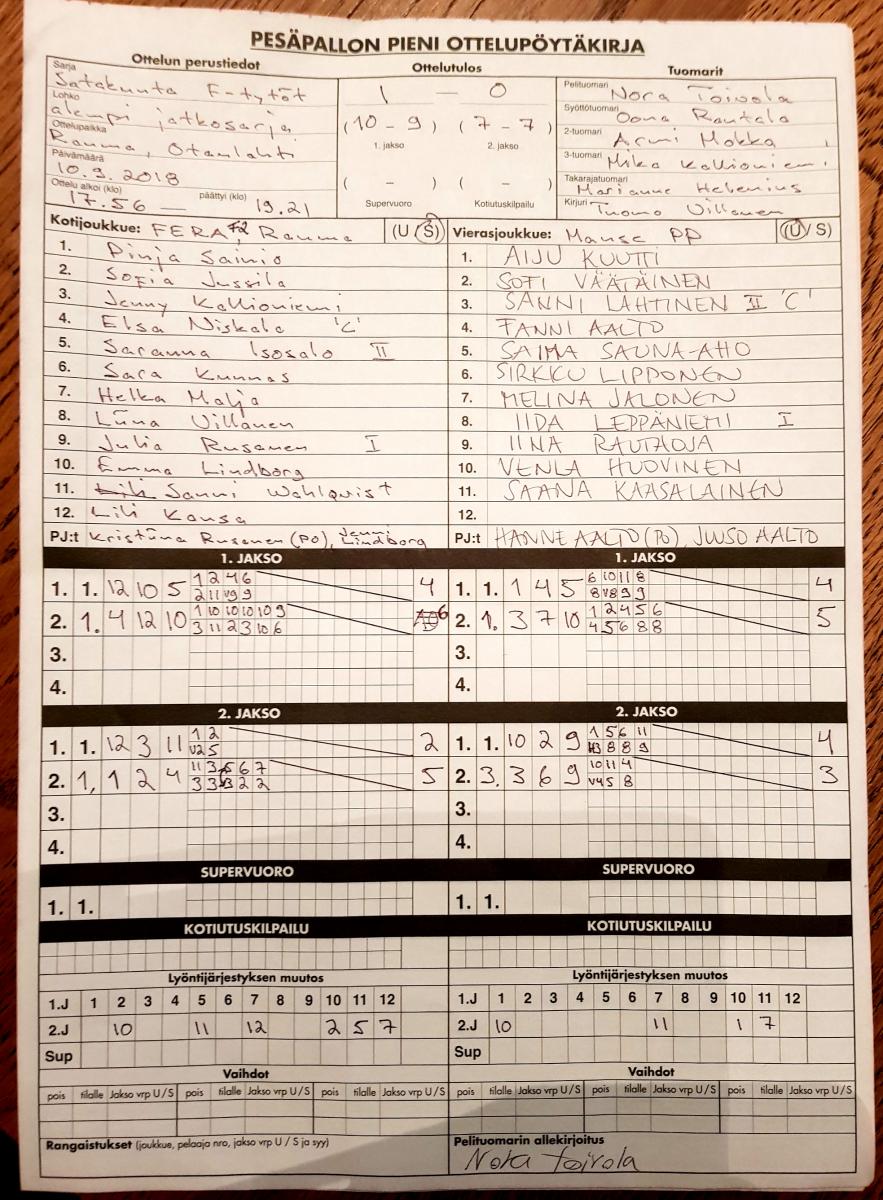 PESÄPALLON PIENI OTTELUPÖYTÄKIRJA
Ottelun perustiedot
Sarja Satakunta F-tytöt
Lohko alempi jatkosarja
Ottelupaikka Rauma, Otanlahti
Päivämäärä 10.9.2018
Ottelu alkoi (klo) 17.56 — päättyi (klo) 19.21
Ottelutulos
1 — 0
(10 - 9) (7 - 7)
1. jakso 2. jakso
( - ) ( - )
Supervuoro Kotiutuskilpailu
Tuomarit
Pelituomari Nora Toivola
Syöttötuomari Oona Rautala
2-tuomari Armi Mokka
3-tuomari Mika Kallioniemi
Takarajatuomari Marianne Helenius
Kirjuri Tuomo Villanen
Kotijoukkue: FERA F2, Rauma (U / S)
1. Pinja Sainio
2. Sofia Jussila
3. Jenny Kallioniemi
4. Elsa Niskala 'C'
5. Saranna Isosalo II
6. Sara Kunnas
7. Helka Malja
8. Liina Villanen
9. Julia Rusanen I
10. Emma Lindborg
11. Sanni Wahlqvist
12. Lili Kansa
PJ:t Kristiina Rusanen (PO), Jenni Lindborg
Vierasjoukkue: Manse PP (U / S)
1. AIJU KUUTTI
2. SOFI VÄÄTÄINEN
3. SANNI LAHTINEN II 'C'
4. FANNI AALTO
5. SAIMA SAUNA-AHO
6. SIRKKU LIPPONEN
7. MELINA JALONEN
8. IIDA LEPPÄNIEMI I
9. IINA RAUTAOJA
10. VENLA HUOVINEN
11. SAANA KAASALAINEN
12.
PJ:t HANNE AALTO (PO), JUUSO AALTO
1. JAKSO
1. 1. 12 10 5 1 2 4 6 4
2 11 V9 9
2. 1. 4 12 10 1 10 10 10 10 9 6
3 11 2 3 10 6
3.
4.
1. JAKSO
1. 1. 1 4 5 6 10 11 8 4
8 V8 9 9
2. 1. 3 7 10 1 2 4 5 6 5
4 5 6 8 8
3.
4.
2. JAKSO
1. 1. 12 3 11 1 2 2
V2 5
2. 1, 1 2 4 11 3 5 6 7 5
3 3 3 2 2
3.
4.
2. JAKSO
1. 1. 10 2 9 1 5 6 11 4
8 8 9
2. 3. 3 6 9 10 11 4 3
V4 5 8
3.
4.
SUPERVUORO
1. 1.
SUPERVUORO
1. 1.
KOTIUTUSKILPAILU
KOTIUTUSKILPAILU
Lyöntijärjestyksen muutos
1.J 1 2 3 4 5 6 7 8 9 10 11 12
2.J 10 11 12 2 5 7
Sup
Lyöntijärjestyksen muutos
1.J 1 2 3 4 5 6 7 8 9 10 11 12
2.J 10 11 1 7
Sup
Vaihdot
pois tilalle Jakso vrp U / S pois tilalle Jakso vrp U / S pois tilalle Jakso vrp U / S
Vaihdot
pois tilalle Jakso vrp U / S pois tilalle Jakso vrp U / S pois tilalle Jakso vrp U / S
Rangaistukset (joukkue, pelaaja nro, jakso vrp U / S ja syy)
Pelituomarin allekirjoitus
Nora Toivola